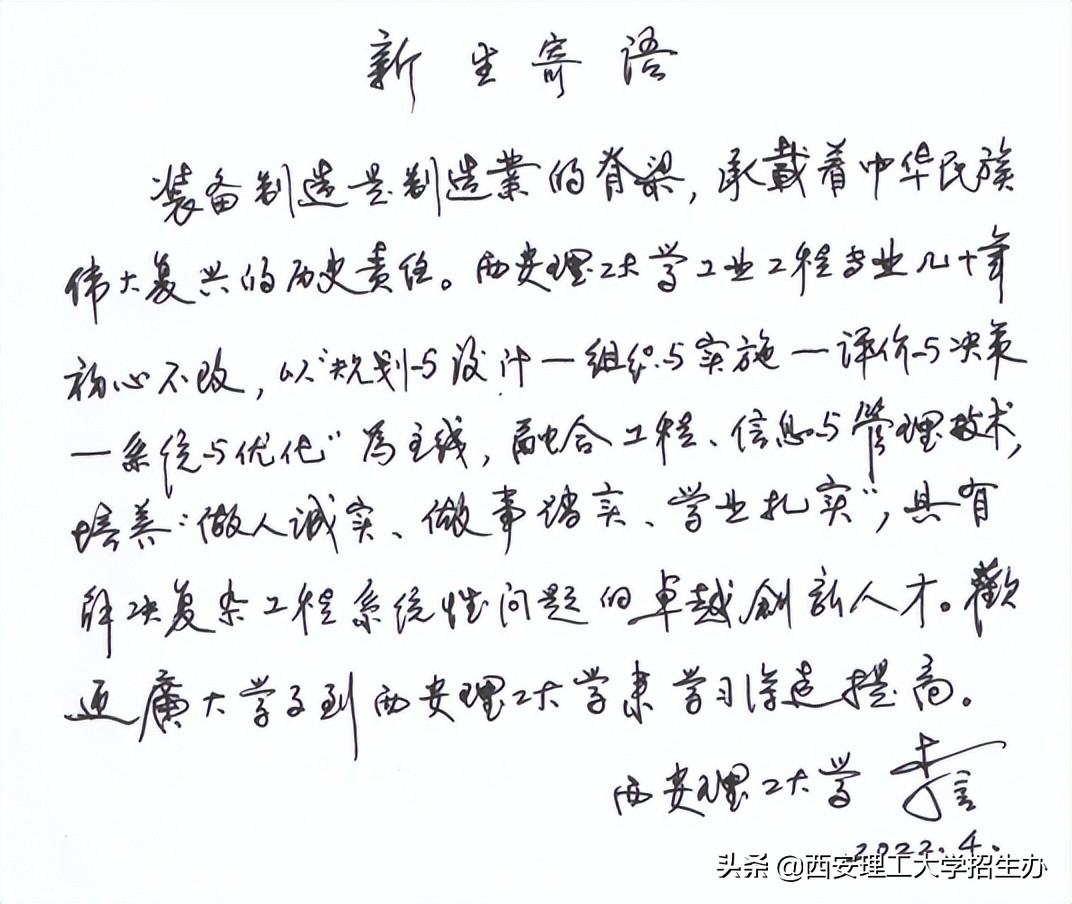 新生寄语
装备制造是制造業的脊梁，承載着中华民族
伟大复兴的历史责任。西安理工大学工业工程专业几十年
初心不改，以“规划与设计—组织与实施—评价与决策
—系统与优化”为主线，融合工程、信息与管理技术，
培养“做人诚实、做事踏实、学业扎实”，具有
解决复杂工程系统性问题的卓越創新人才。歡
迎廣大学子到西安理工大学来学习深造提高。
西安理工大学 李言
2022.4.
头条 @西安理工大学招生办